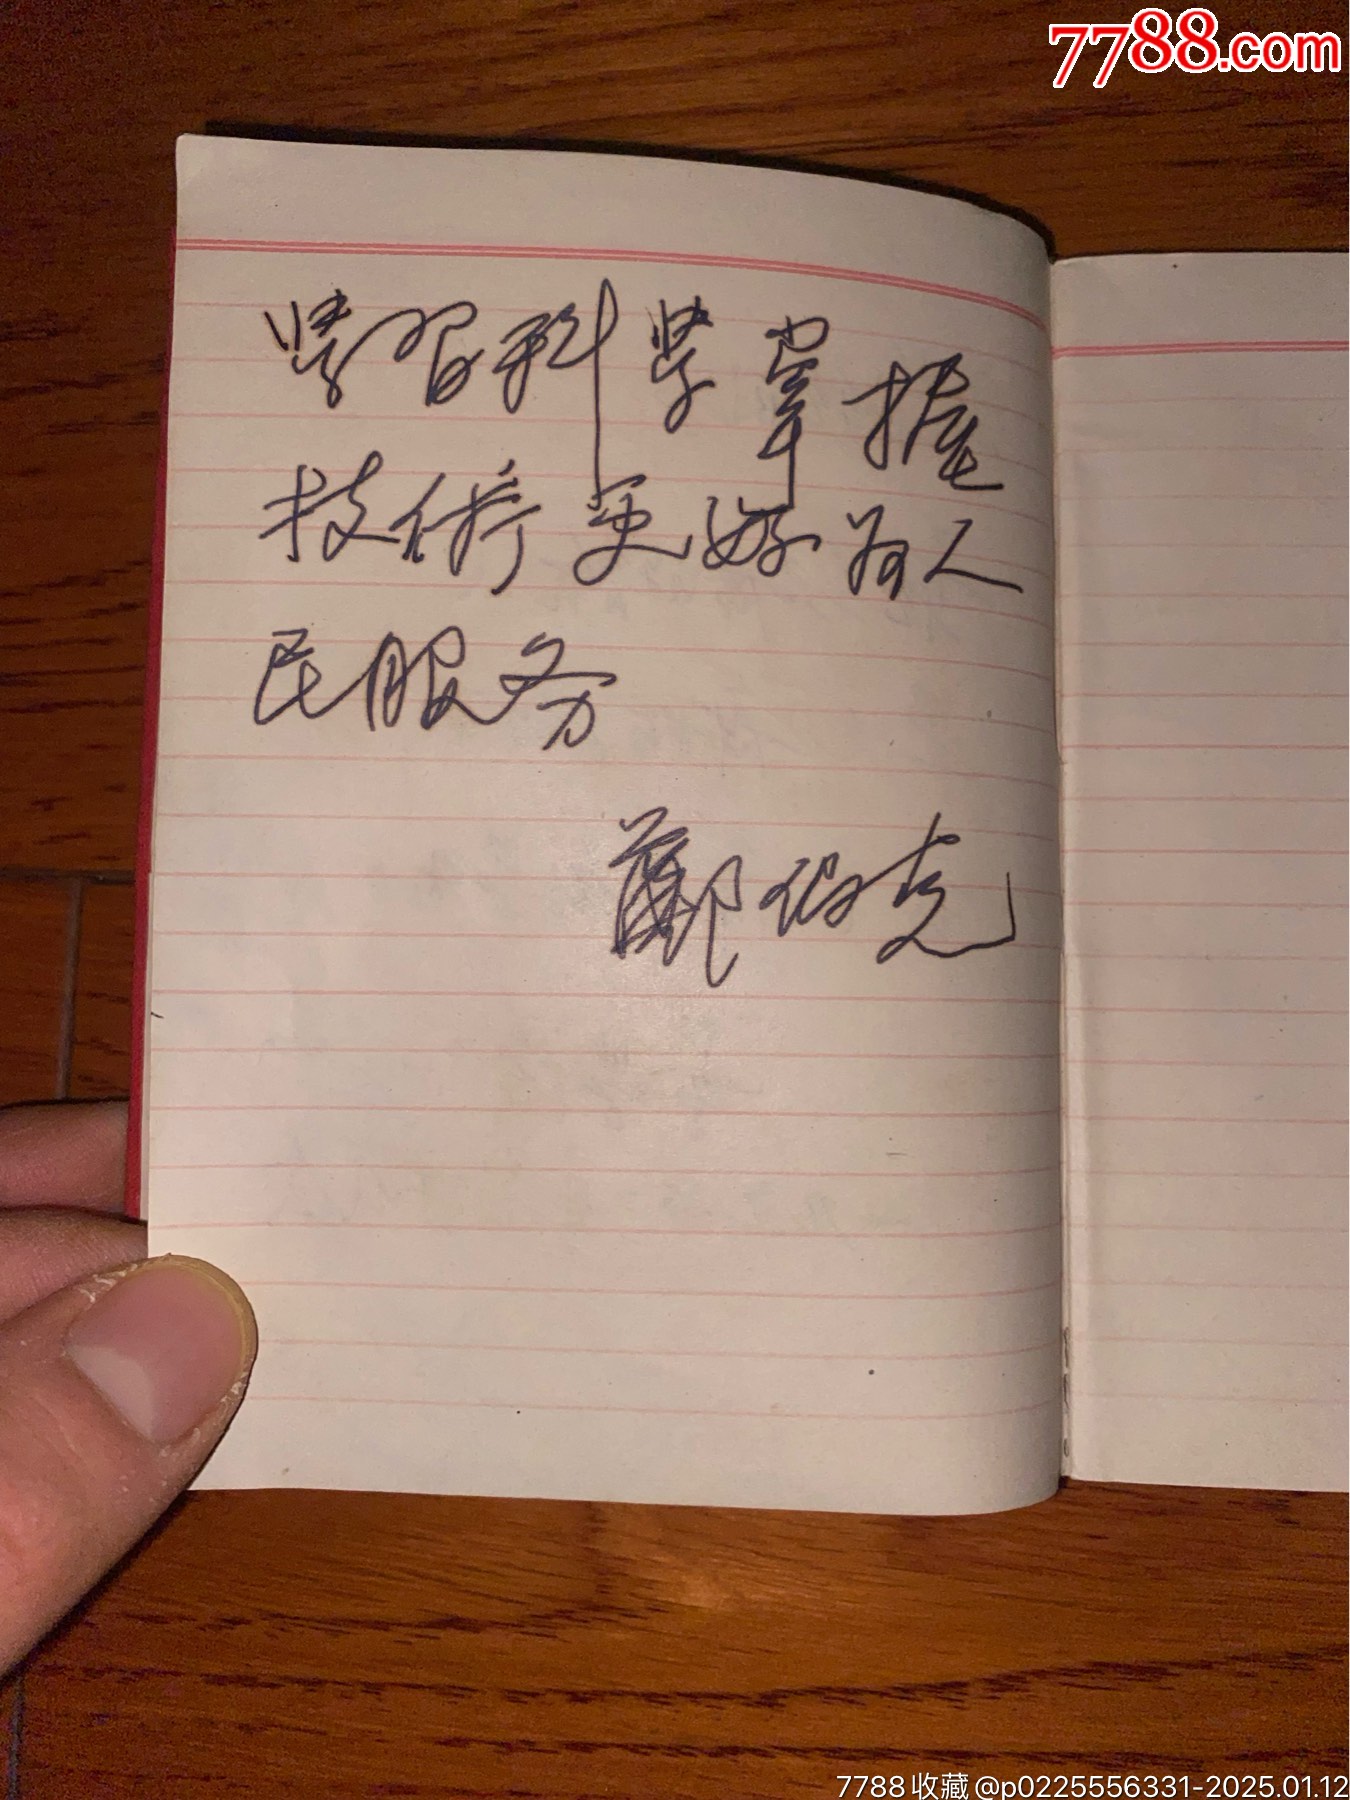 7788.com
学習科学掌握
技術更好为人
民服务
鄭伯克
7788收藏@p0225556331-2025.01.12